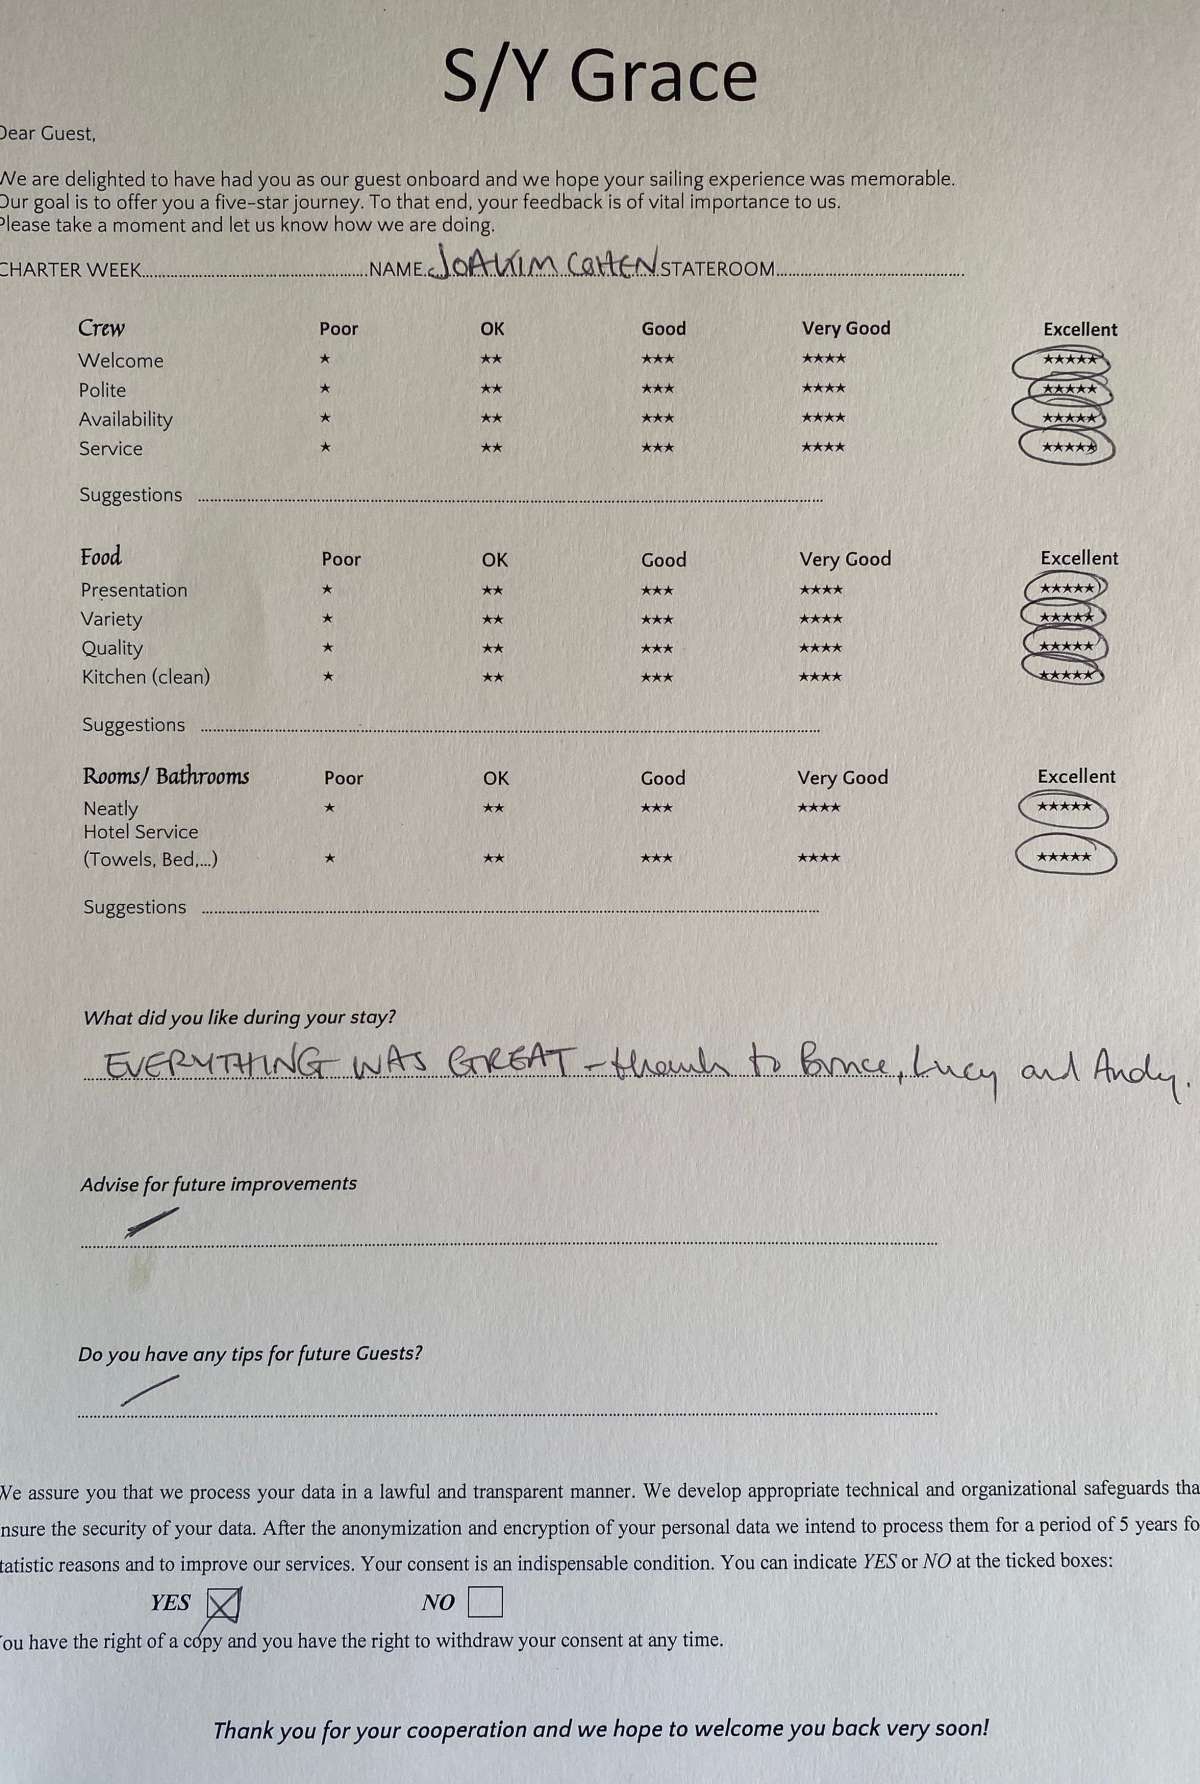 S/Y Grace
Dear Guest,
We are delighted to have had you as our guest onboard and we hope your sailing experience was memorable.
Our goal is to offer you a five-star journey. To that end, your feedback is of vital importance to us.
Please take a moment and let us know how we are doing.
CHARTER WEEK........................NAME. JOAKIM COHEN STATEROOM........................
Crew Poor OK Good Very Good Excellent
Welcome ★ ★★ ★★★ ★★★★ ★★★★★
Polite ★ ★★ ★★★ ★★★★ ★★★★★
Availability ★ ★★ ★★★ ★★★★ ★★★★★
Service ★ ★★ ★★★ ★★★★ ★★★★★
Suggestions ........................
Food Poor OK Good Very Good Excellent
Presentation ★ ★★ ★★★ ★★★★ ★★★★★
Variety ★ ★★ ★★★ ★★★★ ★★★★★
Quality ★ ★★ ★★★ ★★★★ ★★★★★
Kitchen (clean) ★ ★★ ★★★ ★★★★ ★★★★★
Suggestions ........................
Rooms/ Bathrooms Poor OK Good Very Good Excellent
Neatly ★ ★★ ★★★ ★★★★ ★★★★★
Hotel Service
(Towels, Bed,...) ★ ★★ ★★★ ★★★★ ★★★★★
Suggestions ........................
What did you like during your stay?
EVERYTHING WAS GREAT - thanks to Bruce, Lucy and Andy.
Advise for future improvements
Do you have any tips for future Guests?
We assure you that we process your data in a lawful and transparent manner. We develop appropriate technical and organizational safeguards tha
nsure the security of your data. After the anonymization and encryption of your personal data we intend to process them for a period of 5 years fo
tatistic reasons and to improve our services. Your consent is an indispensable condition. You can indicate YES or NO at the ticked boxes:
YES ☒ NO ☐
You have the right of a copy and you have the right to withdraw your consent at any time.
Thank you for your cooperation and we hope to welcome you back very soon!